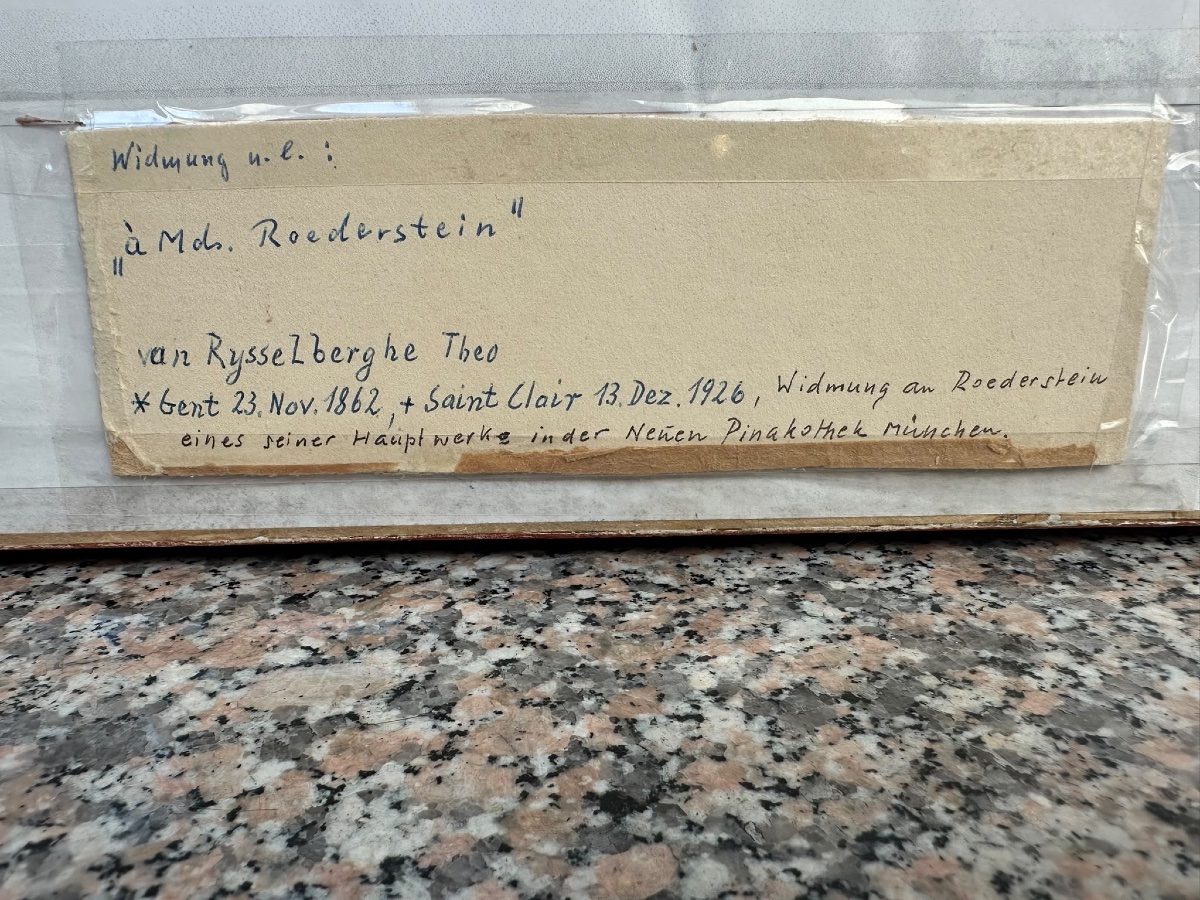 Widmung u. l. :
„à Mds. Roederstein"
van Rysselberghe Theo
* Gent 23. Nov. 1862, + Saint Clair 13. Dez. 1926, Widmung an Roederstein
eines seiner Hauptwerke in der Neuen Pinakothek München.